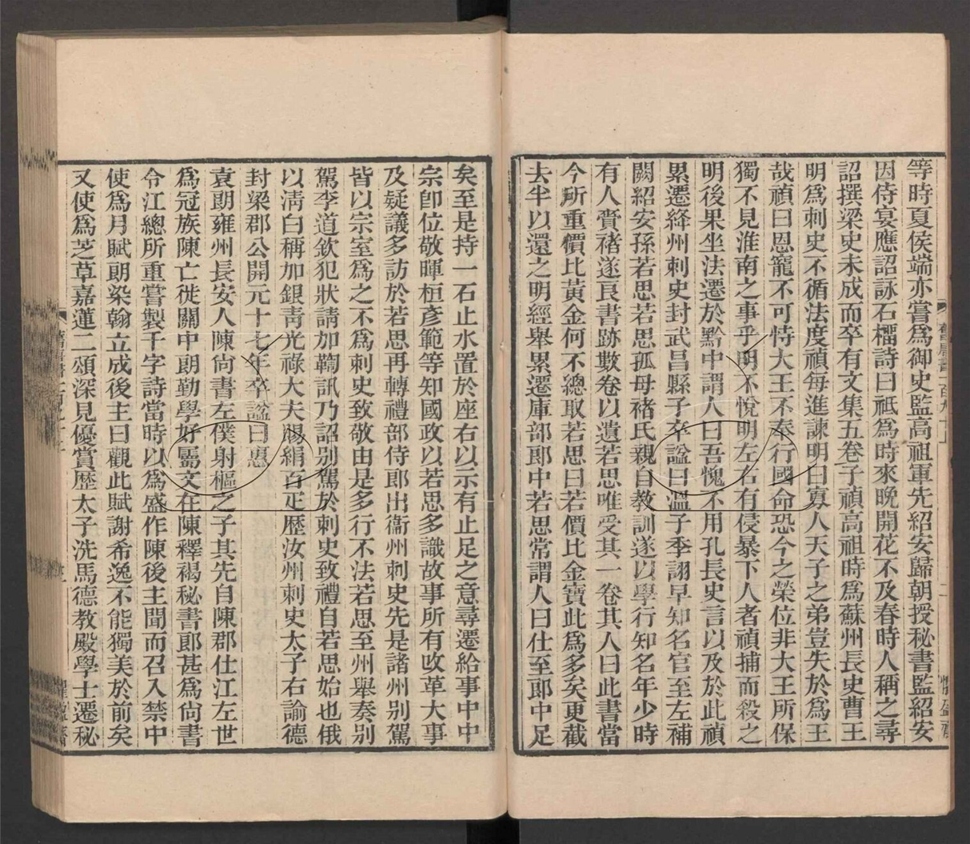 等時夏侯端亦嘗爲御史監高祖軍先紹安歸朝授秘書監紹安
因侍宴應詔詠石橊詩曰祇爲時來晚開花不及春時人稱之尋
詔撰梁史未成而卒有文集五卷子禎高祖時爲蘇州長史曹王
明爲刺史不循法度禎每進諫明曰寡人天子之弟豈失於爲王
哉禎曰恩寵不可恃大王不奉行國命恐今之榮位非大王所保
獨不見淮南之事乎明不悅明左右有侵暴下人者禎捕而殺之
明後果坐法遷於黔中謂人曰吾愧不用孔長史言以及於此禎
累遷絳州刺史封武昌縣子卒諡曰溫子季詡早知名官至左補
闕紹安孫若思若思孤母褚氏親自教訓遂以學行知名年少時
有人賫褚遂良書跡數卷以遺若思唯受其一卷其人曰此書當
今所重價比黃金何不總取若思曰若價比金寶此爲多矣更截
去半以還之明經舉累遷庫部郎中若思常謂人曰仕至郎中足
矣至是持一石止水置於座右以示有止足之意尋遷給事中中
宗卽位敬暉桓彥範等知國政以若思多識故事所有改革大事
及疑議多訪於若思再轉禮部侍郎出衞州刺史先是諸州別駕
皆以宗室爲之不爲刺史致敬由是多行不法若思至州舉奏別
駕李道欽犯狀請加鞫訊乃詔別駕於刺史致禮自若思始也俄
以淸白稱加銀靑光祿大夫賜絹百疋歷汝州刺史太子右諭德
封梁郡公開元十七年卒諡曰惠
袁朗雍州長安人陳尚書左僕射樞之子其先自陳郡仕江左世
爲冠族陳亡徙關中朗勤學好屬文在陳釋褐秘書郎甚爲尚書
令江總所重嘗製千字詩當時以爲盛作陳後主聞而召入禁中
使爲月賦朗染翰立成後主曰觀此賦謝希逸不能獨美於前矣
又使爲芝草嘉蓮二頌深見優賞歷太子洗馬德教殿學士遷秘